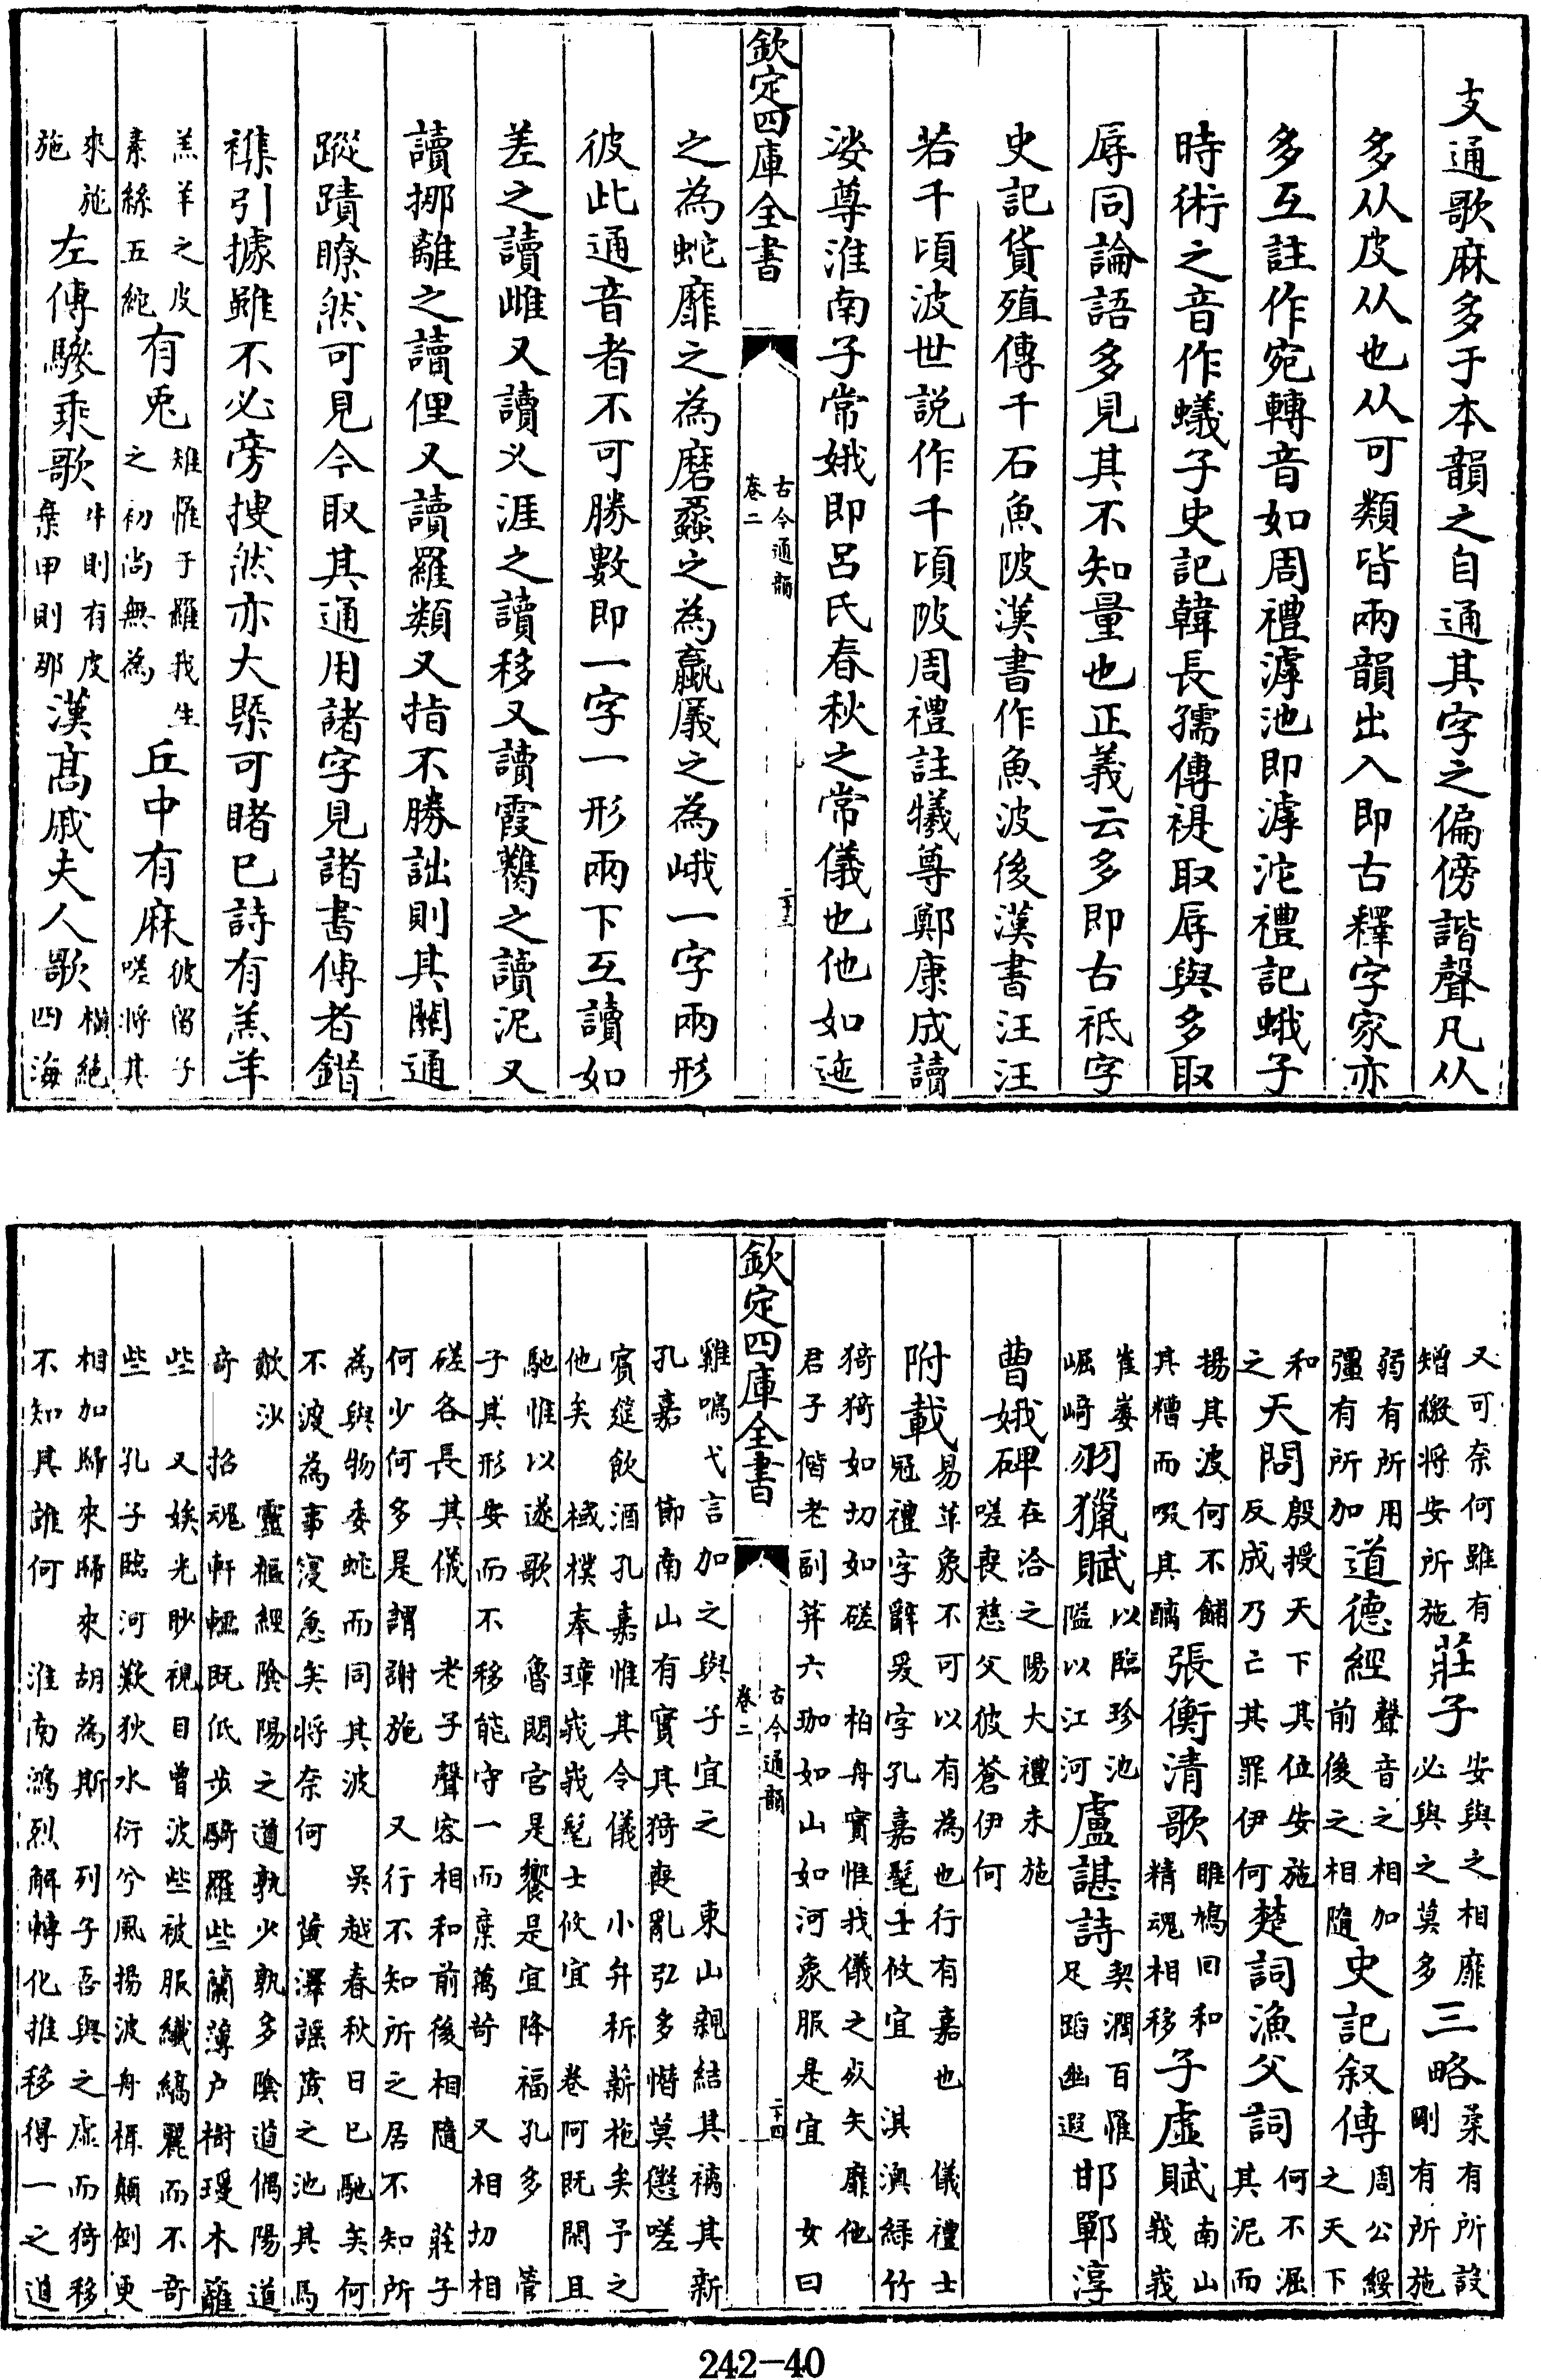 支通歌麻多于本韻之自通其字之偏傍諧聲凡从
多从皮从也从可類皆兩韻出入即古釋字家亦
多互註作宛轉音如周禮滹池即滹沱禮記蛾子
時術之音作蟻子史記韓長孺傳褆取辱與多取
辱同論語多見其不知量也正義云多即古祇字
史記貨殖傳千石魚陂漢書作魚波後漢書汪汪
若千頃波世説作千頃陂周禮註犧尊鄭康成讀
娑尊淮南子常娥即呂氏春秋之常儀也他如迤
欽定四庫全書
古今通韻
卷二
二十三
之為蛇靡之為磨蠡之為蠃厜之為峨一字兩形
彼此通音者不可勝數即一字一形兩下互讀如
差之讀雌又讀义涯之讀移又讀霞鸄之讀泥又
讀挪離之讀俚又讀羅類又指不勝詘則其關通
蹤蹟瞭然可見今取其通用諸字見諸書傳者鍇
襍引據雖不必旁搜然亦大槩可睹已詩有羔羊
羔羊之皮
素絲五紽
有兎
雉罹于羅我生
之初尚無為
丘中有麻
彼留子
嗟將其
來施
施
左傳驂乘歌
牛則有皮
棄甲則那
漢髙戚夫人歌
橫絶
四海
又可奈何雖有
矰繳將安所施
莊子
安與之相靡
必與之莫多
三略
柔有所設
剛有所施
弱有所用
彊有所加
道德經
聲音之相加
前後之相隨
史記叙傳
周公綏
之天下
和
之
天問
殷授天下其位安施
反成乃亡其罪伊何
楚詞漁父詞
何不淈
其泥而
揚其波何不餔
其糟而啜其醨
張衡清歌
雎鳩回和
精魂相移
子虛賦
南山
峩峩
崔嵬
崛﨑
羽獵賦
以臨珍池
隘以江河
盧諶詩
契濶百罹
足蹈幽遐
邯鄲淳
曹娥碑
在洽之陽大禮未施
嗟喪慈父彼蒼伊何
附載
易革象不可以有為也行有嘉也 儀禮士
冠禮字辭爰字孔嘉髦士攸宜 淇澳緑竹
猗猗如切如磋 柏舟實惟我儀之死矢靡他
君子偕老副笄六珈如山如河象服是宜 女曰
欽定四庫全書
古今通韻
卷二
二十四
雞鳴弋言加之與子宜之 東山親結其褵其新
孔嘉 節南山有實其猗喪亂弘多憯莫懲嗟
賓筵飲酒孔嘉惟其令儀 小弁析薪杝矣予之
他矣 棫樸奉璋峩峩髦士攸宜 卷阿既閑且
馳惟以遂歌 魯閟宮是饗是宜降福孔多 管
子其形安而不移能守一而棄萬苛 又相切相
磋各長其儀 老子聲容相和前後相隨 莊子
何少何多是謂謝施 又行不知所之居不知所
為與物委蛇而同其波 吳越春秋日已馳矣何
不渡為事寖急矣將奈何 黃澤謡黃之池其馬
歕沙 靈樞經陰陽之道孰少孰多陰道偶陽道
奇 招魂軒輬既低步騎羅些蘭薄户樹瓊木籬
些 又娭光眇視目曽波些被服纎縞麗而不奇
些 孔子臨河歎狄水衍兮風揚波舟楫顛倒更
相加歸來歸來胡為斯 列子吾與之虛而猗移
不知其誰何 淮南鴻烈解轉化推移得一之道
242-40